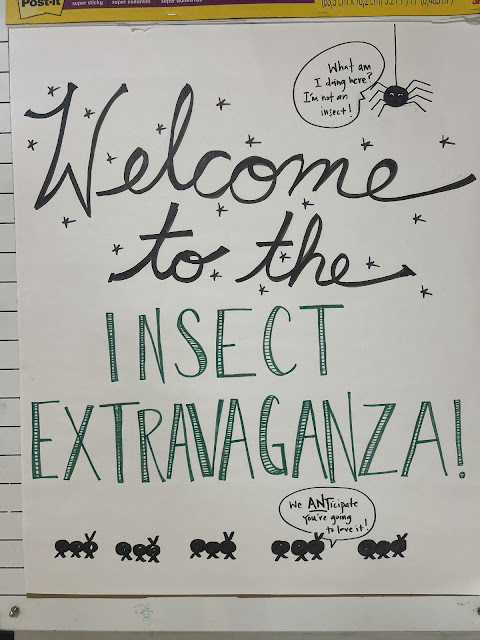 Post-it
super sticky super collantes super adhesivas
What am
I doing here?
I'm not an
insect!
Welcome
to the
INSECT
EXTRAVAGANZA!
We ANTicipate
You're going
to love it!